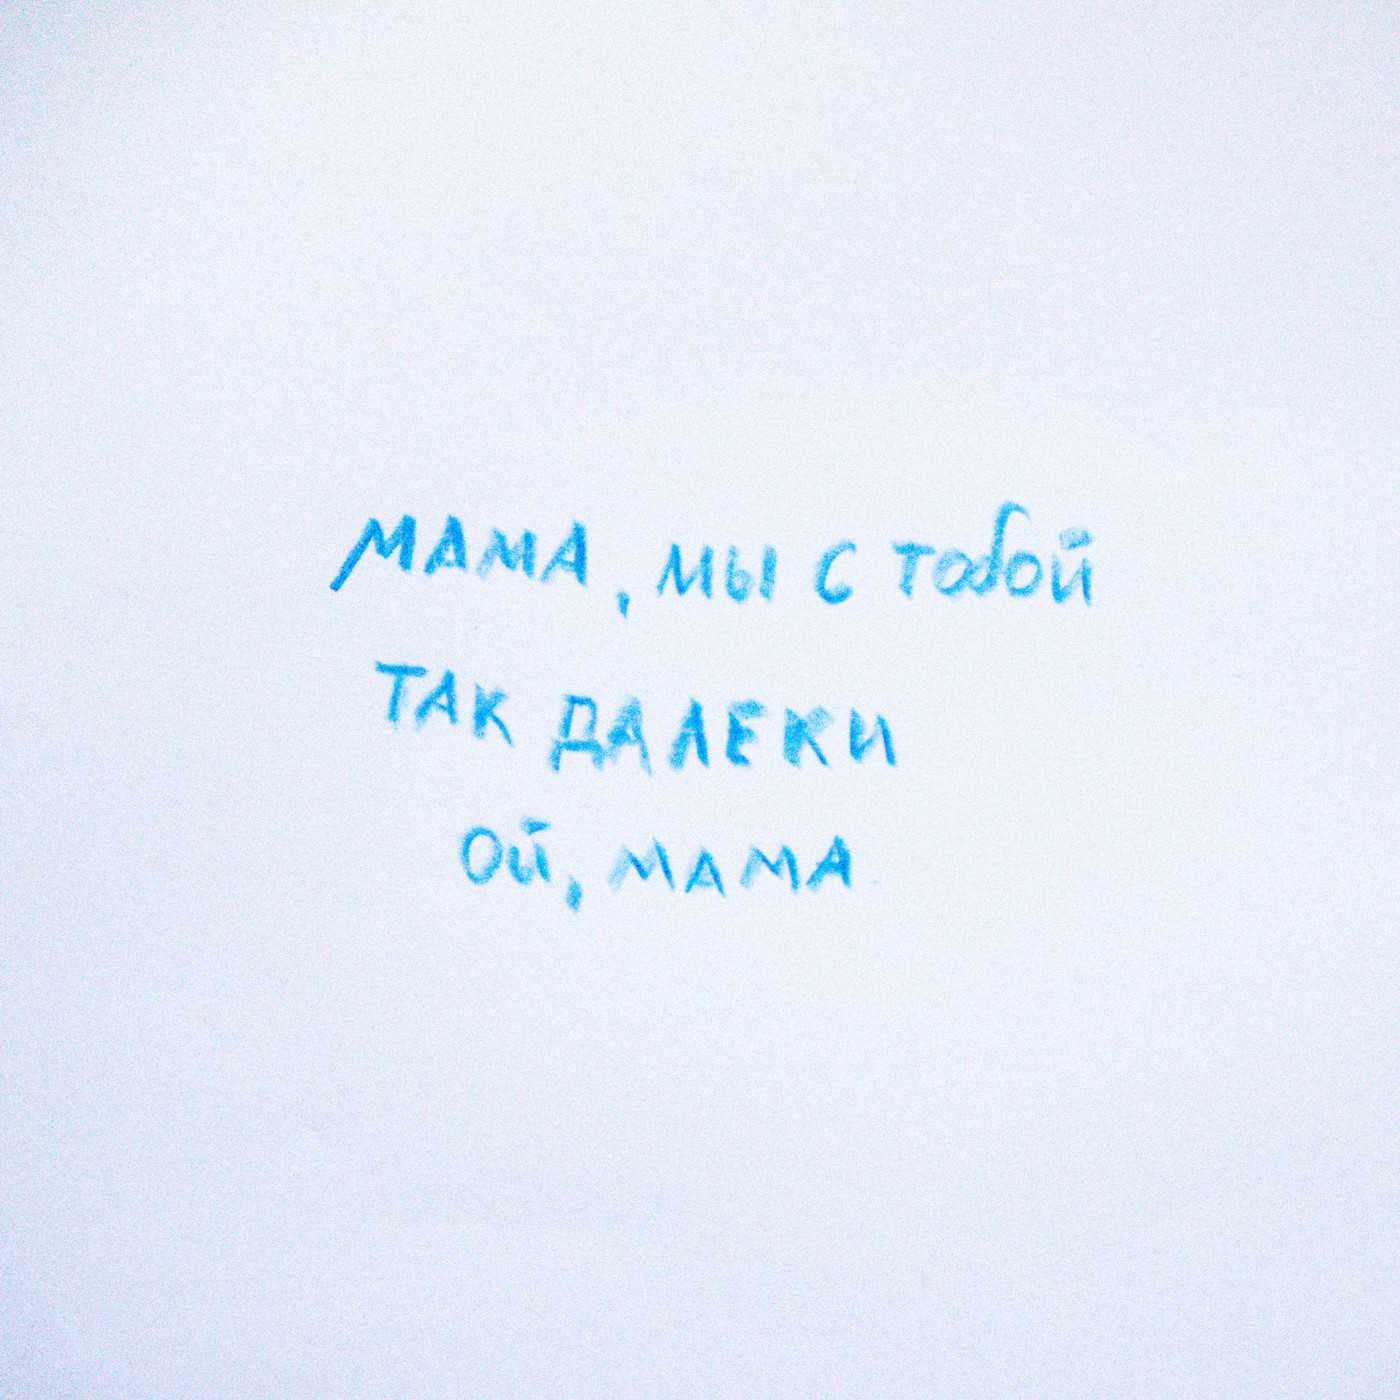 мама, мы с тобой
так далеки
ой, мама